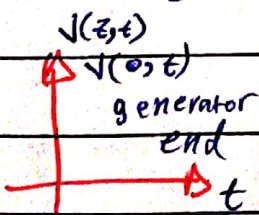 V(z,t)
V(0,t)
generator
end
t